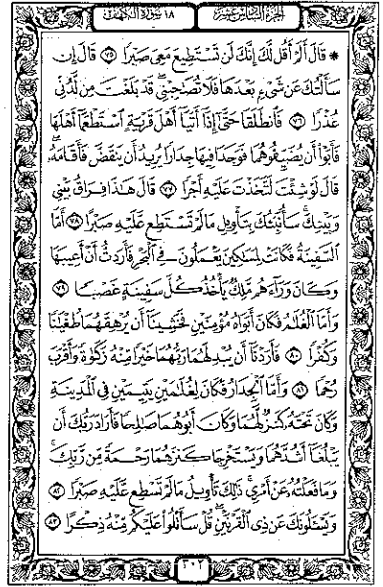 الجزء السادس عشر ١٨ سورة الكهف
* قَالَ أَلَمْ أَقُل لَّكَ إِنَّكَ لَن تَسْتَطِيعَ مَعِيَ صَبْرًا ٧٥ قَالَ إِن
سَأَلْتُكَ عَن شَيْءٍ بَعْدَهَا فَلَا تُصَاحِبْنِي قَدْ بَلَغْتَ مِن لَّدُنِّي
عُذْرًا ٧٦ فَانطَلَقَا حَتَّىٰ إِذَا أَتَيَا أَهْلَ قَرْيَةٍ اسْتَطْعَمَا أَهْلَهَا
فَأَبَوْا أَن يُضَيِّفُوهُمَا فَوَجَدَا فِيهَا جِدَارًا يُرِيدُ أَن يَنقَضَّ فَأَقَامَهُ
قَالَ لَوْ شِئْتَ لَتَّخَذْتَ عَلَيْهِ أَجْرًا ٧٧ قَالَ هَٰذَا فِرَاقُ بَيْنِي
وَبَيْنِكَ سَأُنَبِّئُكَ بِتَأْوِيلِ مَا لَمْ تَسْتَطِع عَّلَيْهِ صَبْرًا ٧٨ أَمَّا
السَّفِينَةُ فَكَانَتْ لِمَسَاكِينَ يَعْمَلُونَ فِي الْبَحْرِ فَأَرَدتُّ أَنْ أَعِيبَهَا
وَكَانَ وَرَاءَهُم مَّلِكٌ يَأْخُذُ كُلَّ سَفِينَةٍ غَصْبًا ٧٩
وَأَمَّا الْغُلَامُ فَكَانَ أَبَوَاهُ مُؤْمِنَيْنِ فَخَشِينَا أَن يُرْهِقَهُمَا طُغْيَانًا
وَكُفْرًا ٨٠ فَأَرَدْنَا أَن يُبْدِلَهُمَا رَبُّهُمَا خَيْرًا مِّنْهُ زَكَوٰةً وَأَقْرَبَ
رُحْمًا ٨١ وَأَمَّا الْجِدَارُ فَكَانَ لِغُلَامَيْنِ يَتِيمَيْنِ فِي الْمَدِينَةِ
وَكَانَ تَحْتَهُ كَنزٌ لَّهُمَا وَكَانَ أَبُوهُمَا صَالِحًا فَأَرَادَ رَبُّكَ أَن
يَبْلُغَا أَشُدَّهُمَا وَيَسْتَخْرِجَا كَنزَهُمَا رَحْمَةً مِّن رَّبِّكَ
وَمَا فَعَلْتُهُ عَنْ أَمْرِي ذَٰلِكَ تَأْوِيلُ مَا لَمْ تَسْطِع عَّلَيْهِ صَبْرًا ٨٢
وَيَسْـَٔلُونَكَ عَن ذِي الْقَرْنَيْنِ قُلْ سَأَتْلُوا عَلَيْكُم مِّنْهُ ذِكْرًا ٨٣
٣٠٢